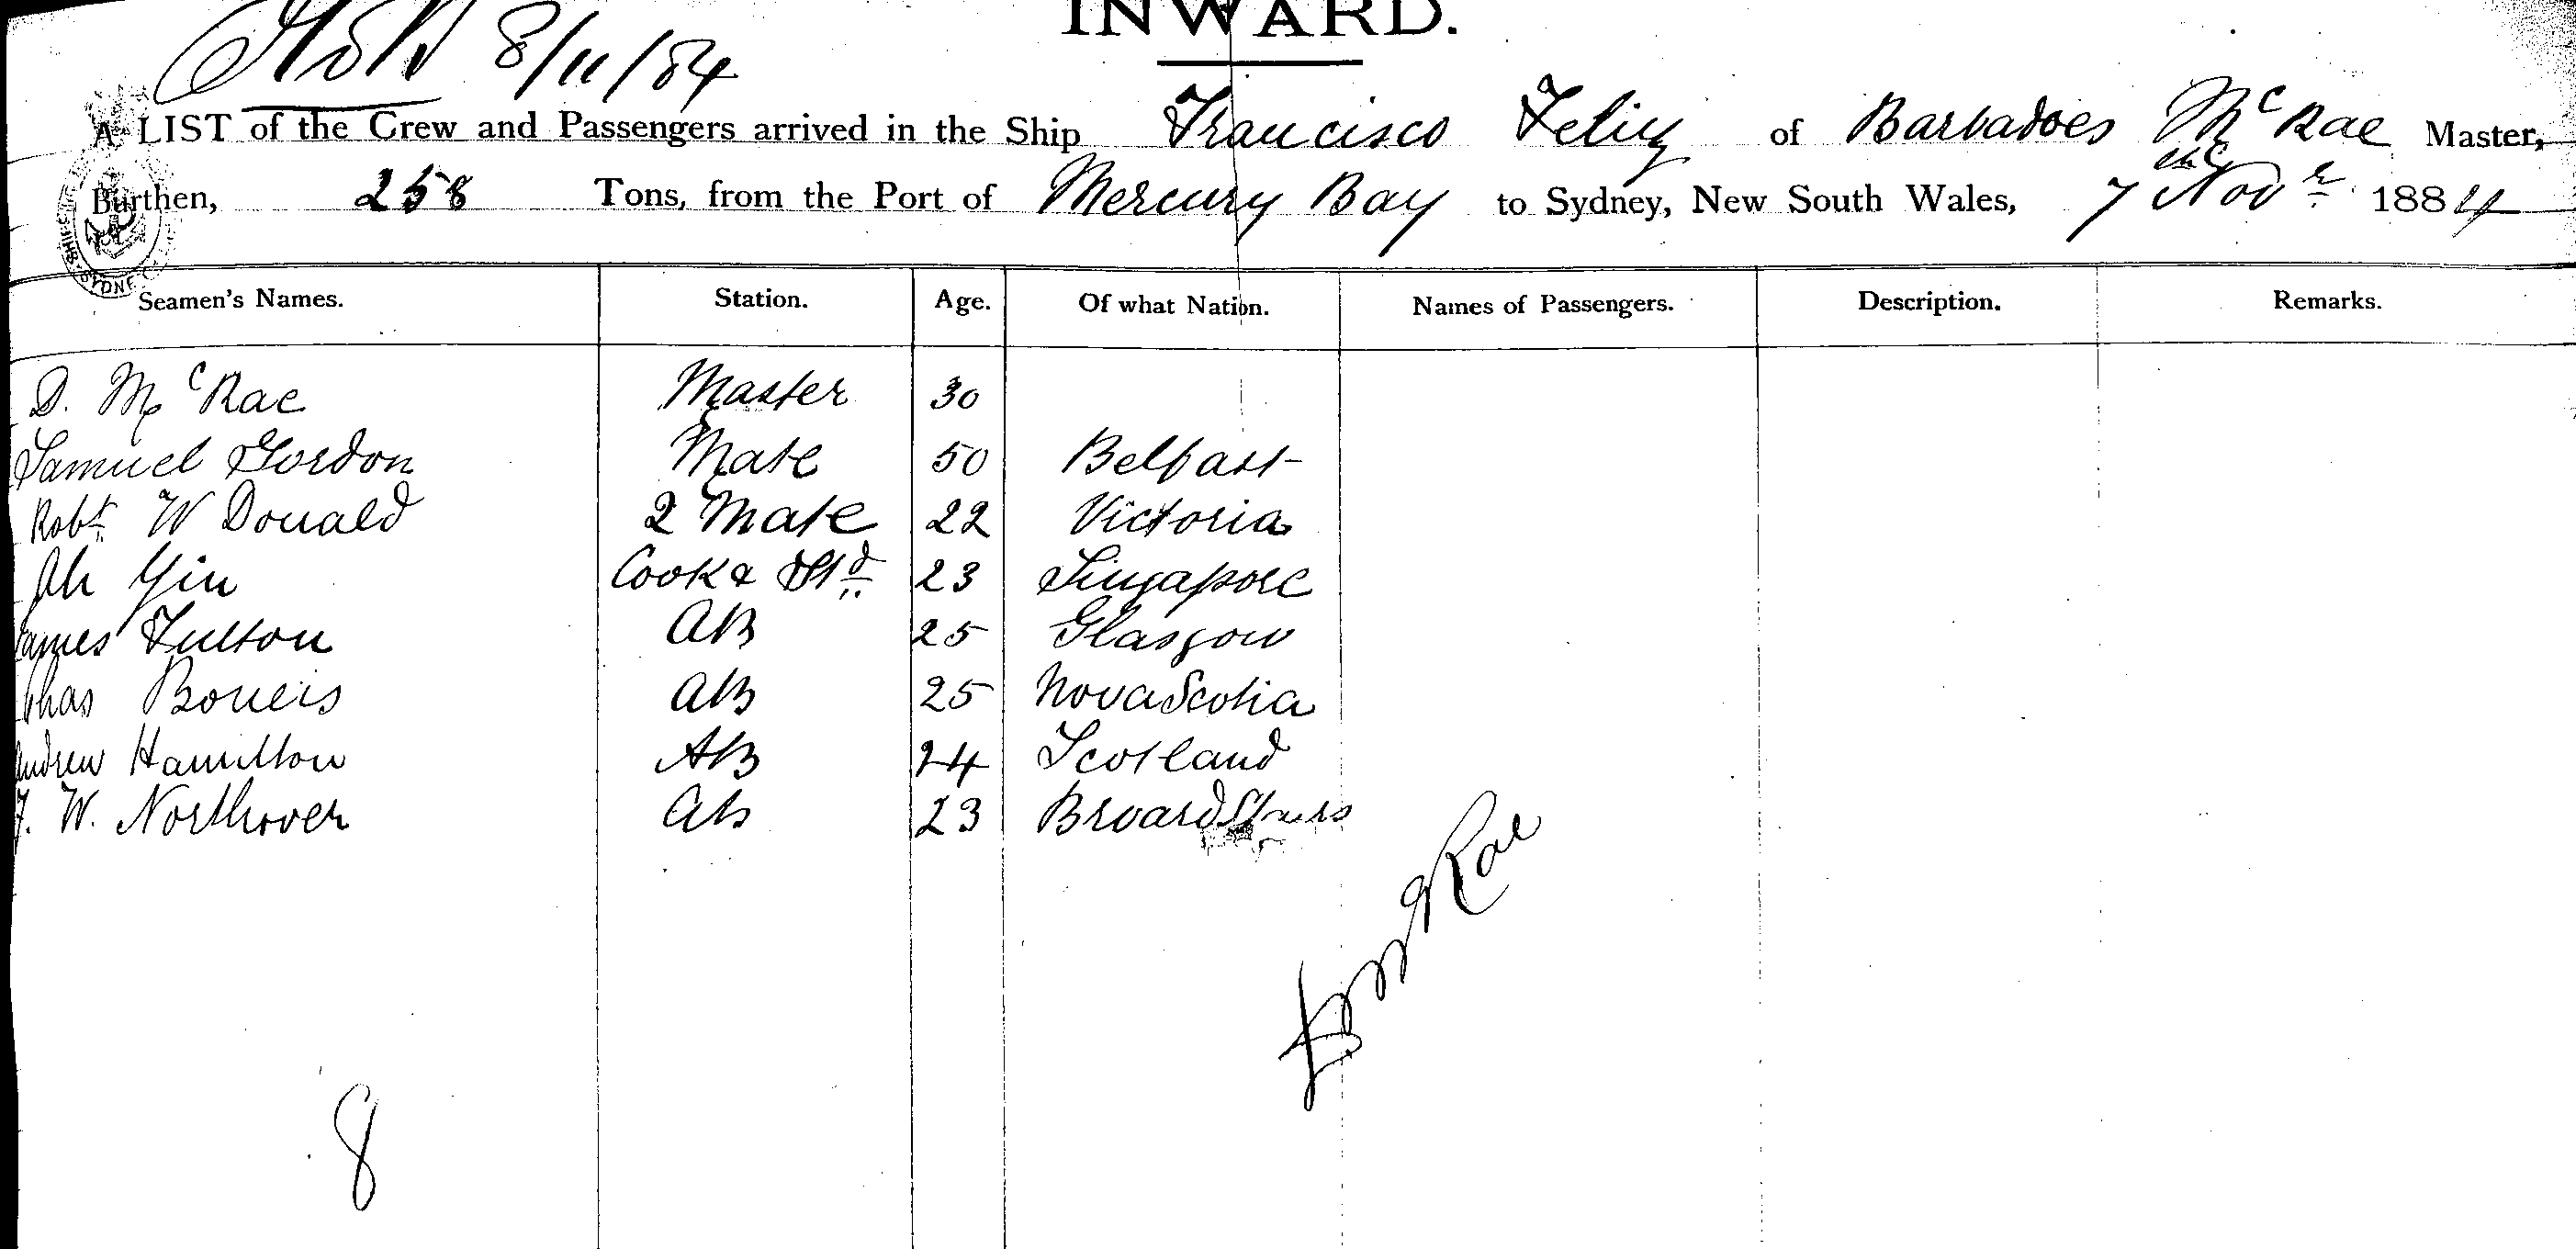 INWARD.
8/11/84
A LIST of the Crew and Passengers arrived in the Ship Francisco Feliz of Barbadoes McRae Master,
Burthen, 258 Tons, from the Port of Mercury Bay to Sydney, New South Wales, 7 Novr 1884
Seamen's Names. Station. Age. Of what Nation. Names of Passengers. Description. Remarks.
D. McRae Master 30
Samuel Gordon Mate 50 Belfast
Robt W Donald 2 Mate 22 Victoria
Ah Yin Cook & Std 23 Singapore
James Fulton AB 25 Glasgow
Chas Boneis AB 25 Nova Scotia
Andrew Hamilton AB 24 Scotland
F. W. Northover AB 23 BroardStairs
D McRae
8